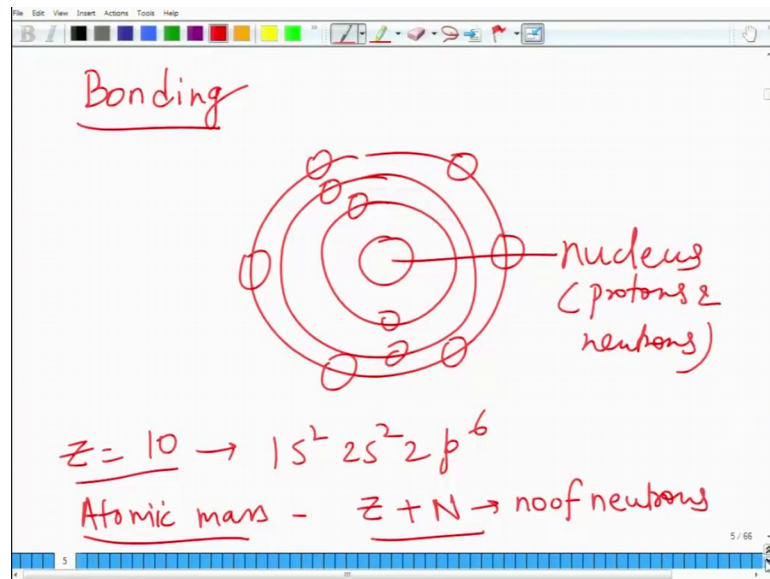 File Edit View Insert Actions Tools Help
B I
Bonding
nucleus
(protons &
neutrons)
Z = 10 → 1s² 2s² 2p⁶
Atomic mass - Z + N → no of neutrons
5 / 66
5